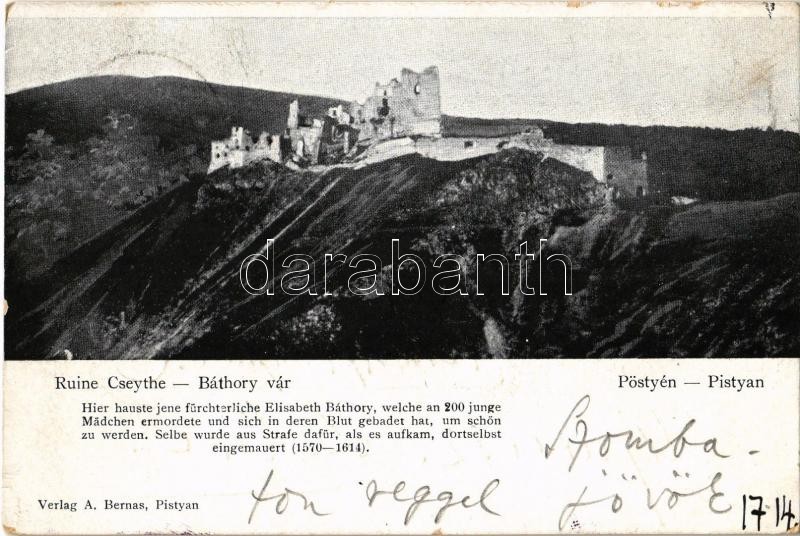 darabanth
Ruine Cseythe — Báthory vár
Pöstyén — Pistyan
Hier hauste jene fürchterliche Elisabeth Báthory, welche an 200 junge
Mädchen ermordete und sich in deren Blut gebadet hat, um schön
zu werden. Selbe wurde aus Strafe dafür, als es aufkam, dortselbst
eingemauert (1570—1614).
Szomba-
ton reggel jövök
Verlag A. Bernas, Pistyan
1714.